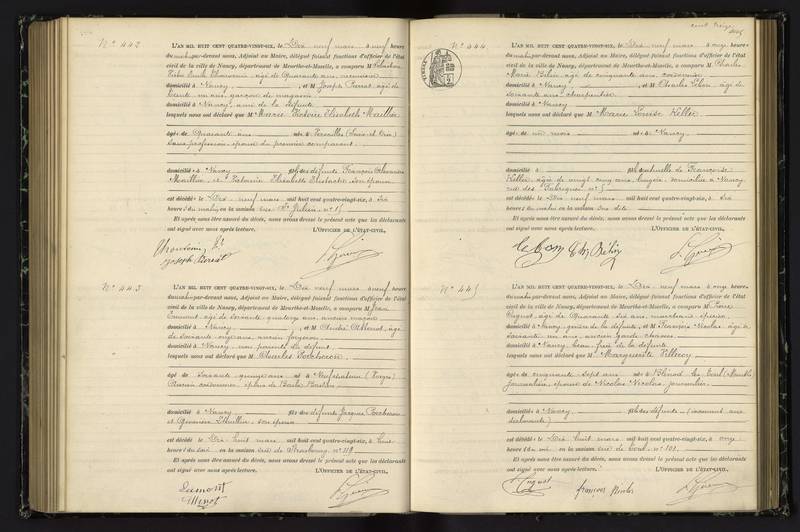 N° 442
L'AN MIL HUIT CENT QUATRE-VINGT-SIX, le Dix neuf mars, à neuf heures
du matin par-devant nous, Adjoint au Maire, délégué faisant fonctions d'officier de l'état
civil de la ville de Nancy, département de Meurthe-et-Moselle, a comparu M
âgé de Quarante ans,
domicilié à Nancy, et M Joseph âgé de
trente un ans, garçon de magasin
domicilié à Nancy, ami de la défunte
lesquels nous ont déclaré que M Marie Victoire Elisabeth Maillier
âgée de Quarante ans née à Versailles (Seine et Oise)
Sans profession, épouse du premier comparant
domiciliée à Nancy fille des défunts François
et Victoire Elisabeth son épouse
est décédée le Dix neuf mars mil huit cent quatre-vingt-six, à six
heures du matin en la maison rue St Julien, n° 15
Et après nous être assuré du décès, nous avons dressé le présent acte que les déclarants
ont signé avec nous après lecture. L'OFFICIER DE L'ÉTAT-CIVIL,
N° 443
L'AN MIL HUIT CENT QUATRE-VINGT-SIX, le Dix neuf mars à neuf heures
du matin par-devant nous, Adjoint au Maire, délégué faisant fonctions d'officier de l'état
civil de la ville de Nancy, département de Meurthe-et-Moselle, a comparu M Jean
âgé de soixante quatorze ans, ancien maçon
domicilié à Nancy, et M André âgé
de soixante onze ans, ancien
domicilié à Nancy, non parents du défunt
lesquels nous ont déclaré que M Charles Porcheron
âgé de soixante quinze ans né à Neufchâteau (Vosges)
Ancien cuisinier, époux de Barbe
domicilié à Nancy fils des défunts Jacques Porcheron
et Geneviève son épouse
est décédé le Dix huit mars mil huit cent quatre-vingt-six, à huit
heures du soir en la maison rue de Strasbourg, n° 119
Et après nous être assuré du décès, nous avons dressé le présent acte que les déclarants
ont signé avec nous après lecture. L'OFFICIER DE L'ÉTAT-CIVIL,
cent treize
N° 444
L'AN MIL HUIT CENT QUATRE-VINGT-SIX, le Dix neuf mars à onze heures
du matin par-devant nous, Adjoint au Maire, délégué faisant fonctions d'officier de l'état
civil de la ville de Nancy, département de Meurthe-et-Moselle, a comparu M Charles
Marie âgé de cinquante ans,
domicilié à Nancy, et M Charles âgé de
soixante ans, charpentier
domicilié à Nancy
lesquels nous ont déclaré que M Marie Louise Keller
âgée de un mois née à Nancy
domiciliée à fille naturelle de Françoise
Keller, âgée de vingt cinq ans, lingère, domiciliée à Nancy
rue des Fabriques n° 5
est décédée le Dix neuf mars mil huit cent quatre-vingt-six, à six
heures du matin en la maison sus dite
Et après nous être assuré du décès, nous avons dressé le présent acte que les déclarants
ont signé avec nous après lecture. L'OFFICIER DE L'ÉTAT-CIVIL,
N° 445
L'AN MIL HUIT CENT QUATRE-VINGT-SIX, le Dix neuf mars à onze heures
du matin par-devant nous, Adjoint au Maire, délégué faisant fonctions d'officier de l'état
civil de la ville de Nancy, département de Meurthe-et-Moselle, a comparu M Pierre
Huguet, âgé de Quarante six ans, marchand épicier
domicilié à Nancy, gendre de la défunte, et M François Nicolas âgé de
soixante un ans, ancien garde chasse
domicilié à Nancy, beau frère de la défunte
lesquels nous ont déclaré que M Marguerite Villeroy
âgée de cinquante sept ans née à Blénod les Toul (Meurthe)
Journalière, épouse de Nicolas Nicolas, journalier
domiciliée à Nancy fille des défunts (inconnus aux
déclarants)
est décédée le Dix huit mars mil huit cent quatre-vingt-six, à onze
heures du en la maison rue de Toul, n° 101
Et après nous être assuré du décès, nous avons dressé le présent acte que les déclarants
ont signé avec nous après lecture. L'OFFICIER DE L'ÉTAT-CIVIL,
Huguet françois Nicolas